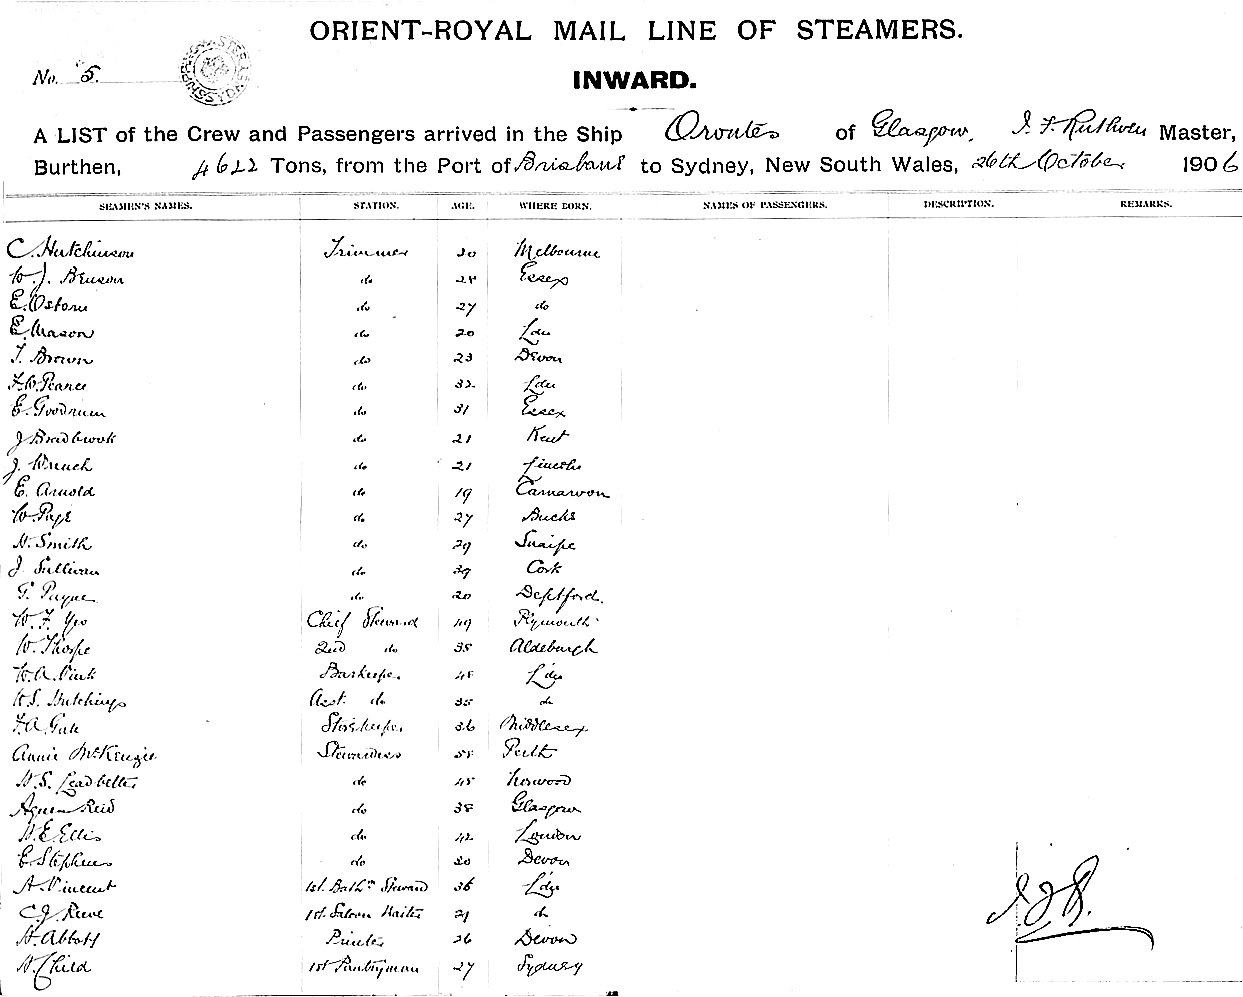 ORIENT-ROYAL MAIL LINE OF STEAMERS.
No. 5.
INWARD.
A LIST of the Crew and Passengers arrived in the Ship Orontes of Glasgow, J. F. Ruthven Master,
Burthen, 4622 Tons, from the Port of Brisbane to Sydney, New South Wales, 26th October 1906
SEAMEN'S NAMES. STATION. AGE. WHERE BORN. NAMES OF PASSENGERS. DESCRIPTION. REMARKS.
C. Hutchinson Trimmer 30 Melbourne
W. J. Benson do 28 Essex
E. Osborn do 27 do
E. Mason do 20 Ldn
T. Brown do 23 Devon
F. W. Pearce do 32 Ldn
E. Goodrum do 31 Essex
J Bradbrook do 21 Kent
J. Wrench do 21 Lincoln
E. Arnold do 19 Carnarvon
W. Page do 27 Bucks
H. Smith do 29 Snaipe
J Sullivan do 39 Cork
Payne do 20 Deptford.
W. F. Yeo Chief Steward 49 Plymouth
W. Thorpe 2nd do 38 Aldeburgh
W. A. Pink Barkeeper 48 Ldn
W. S. Hutchings Asst. do 35 do
F. A. Gale Storekeeper 36 Middlesex
Annie McKenzie Stewardess 58 Perth
H. S. Leadbetter do 48 Norwood
Agnes Reid do 38 Glasgow
H. E. Ellis do 42 London
E. Stephens do 30 Devon
A. Vincent 1st. Bath m Steward 36 Ldn
C. J. Reeve 1st. Saloon Waiter 21 do
H. Abbott Printer 26 Devon
H. Child 1st Pantryman 27 Sydney
J F R.